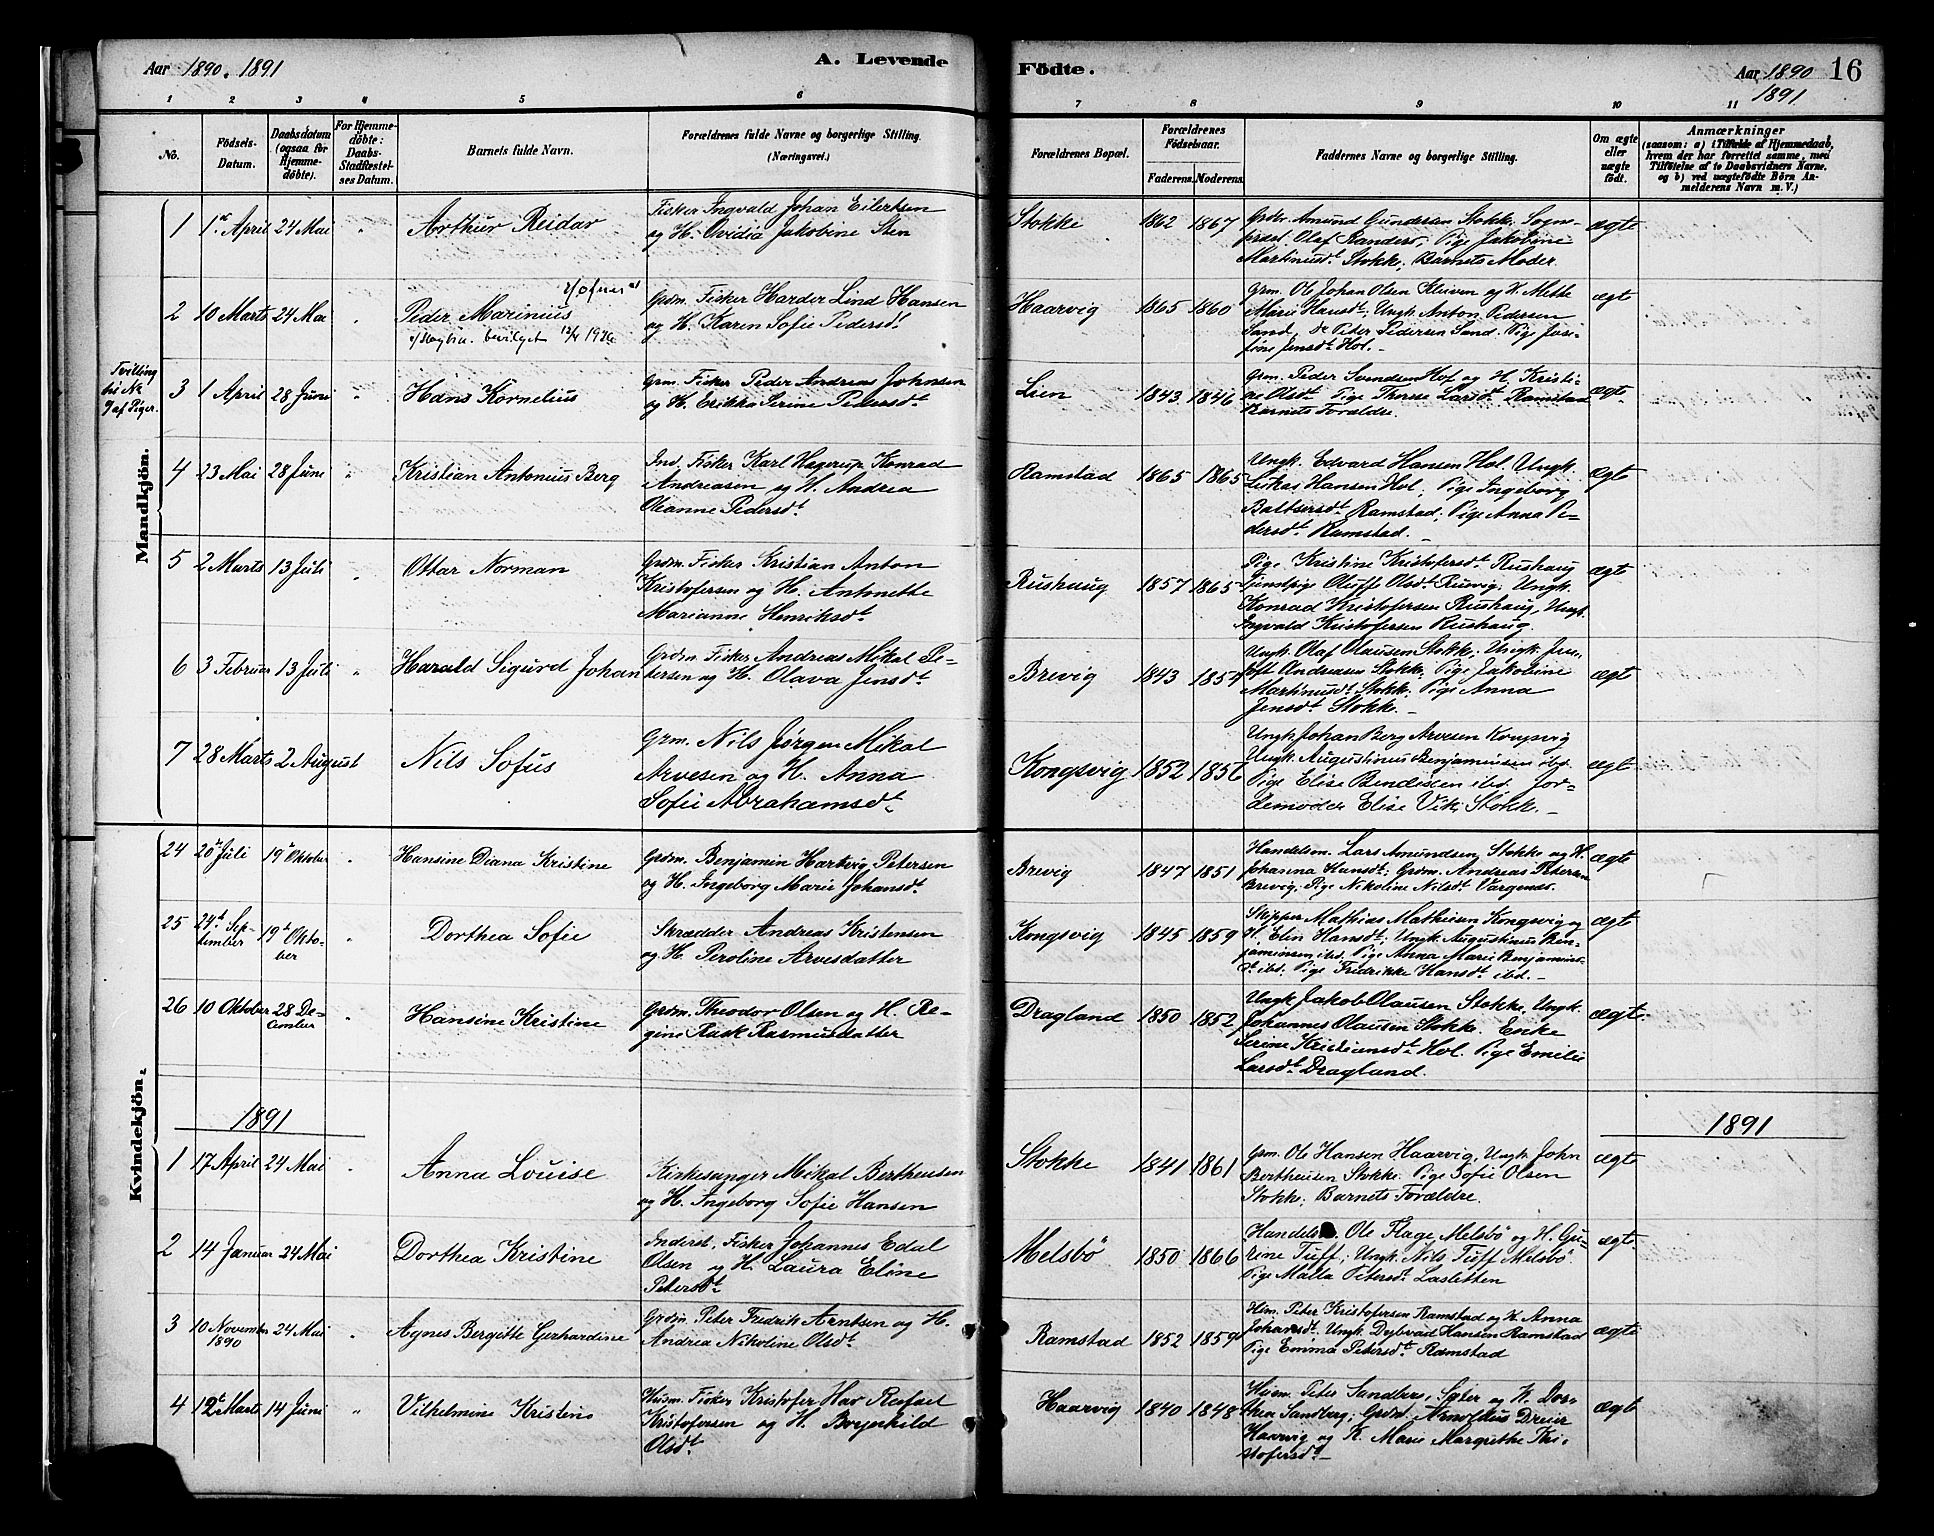 Aar 1890. 1891
A. Levende
Födte.
Aar 1890 16
1891
1 2 3 4 5 6 7 8 9 10 11
No.
Födsels-
Datum.
Daabsdatum
(ogsaa for
Hjemme-
døbte).
For Hjemme-
døbte:
Daabs-
Stadfæstel-
ses Datum.
Barnets fulde Navn.
Forældrenes fulde Navne og borgerlige Stilling.
(Næringsvei.)
Forældrenes Bopæl.
Forældrenes
Fødselsaar.
Faderens. Moderens.
Faddernes Navne og borgerlige Stilling.
Om ægte
eller
uægte
født.
Anmærkninger
(saasom: a) i Tilfælde af Hjemmedaab,
hvem der har forrettet samme, med
Tilføielse af to Daabsvidners Navne,
og b) ved uægtefödte Börn An-
melderens Navn m. V.)
Mandkjön.
1 1st April 24 Mai " Arthur Reidar
Fisker Ingvald Johan Eilertsen
og H. Ovidia Jakobine Sten
Stokke 1862 1867
Grdbr. Amund Gundersen Stokke, Sogne-
præst Olaf Sanders, Pige Jakobine
Martinusdt Stokke, Barnets Moder.
ægte
2 10 Marts 24 Mai " Peder Marinius
bevilget 12/4 1926
Grdm. Fisker Harder Lind Hansen
og H. Karen Sofie Pedersdt
Haarvig 1865 1860
Grm. Ole Johan Olsen Kleiven og H. Mette
Marie Hansdt; Ungk. Anton Pedersen
Sand, do Peter Pedersen Sand. Pige Jose-
fine Jensdt Hol. —
ægt
Tvilling
til No
9 af Piger.
3 1 April 28 Juni " Hans Kornelius
Grm. Fisker Peder Andreas Johnsen
og H. Erikka Serine Pedersdt
Lien 1843 1846
Grm. Peder Svendsen Hof og H. Kristi-
ne Olsdt Pige Therese Larsdt Ramstad
Barnets Forældre.
ægte
4 23 Mai 28 June " Kristian Antonius Berg
Ind. Fisker Karl Hagerup Konrad
Andreasen og H. Andrea
Oleanne Pedersdt
Ramstad 1865 1865
Ungk. Edvard Hansen Hol, Ungk.
Lukas Hansen Hol; Pige Ingeborg
Baltsersdt Ramstad, Pige Anna Pe-
dersdt Ramstad. —
ægt
5 2 Marts 13 Juli " Ottar Norman
Grdm. Fisker Kristian Anton
Kristofersen og H. Antonette
Marianne Henriksdt
Rushaug 1857 1865
Pige Kristine Kristofersdt Rushaug
Oluffe Olsdt Ungk.
Konrad Kristofersen Rushaug, Ungk.
Ingvald Kristofersen Rushaug
ægt
6 3 Februar 13 Juli " Harald Sigurd Johan
Grdm. Fisker Andreas Mikal Pe-
tersen og H. Olava Jensdt
Brevig 1843 1857
Ungk. Olaf Olausen Stokke, Ungk. Jen-
Andreasen Stokke, Pige Jakobine
Martinusdt Stokke, Pige Anna
Jensdt Stokke. —
ægt
7 28 Marts 2 August Nils Sofus
Grm. Nils Jørgen Mikal
Arvesen og H. Anna
Sofie Abrahamsdt
Kongsvig 1852 1856
Ungk Johan Berg Arvesen Kongsvig
Ungk. Augustinus Benjaminsen ibd.
Pige Elise Bendiksen ibd. Jor-
demoder Elise Vik, Stokke. —
ægt
Kvindekjön.
24 20de Juli 19de Oktober " Hansine Diana Kristine
Grdm. Benjamin Hartvig Petersen
og H. Ingeborg Marie Johansdt
Brevig 1847 1851
Handelsm. Lars Amundsen Stokke og H.
Johanna Hansdt; Grdm. Andreas Petersen
Brevig, Pige Nikoline Nilsdt Vargenes.
ægte
25 24de Sep-
tember 19de Okto-
ber " Dorthea Sofie
Skrædder Andreas Kristensen
og H. Peroline Arvesdatter
Kongsvig 1845 1859
Skipper Mathias Mathisen Kongsvig og
H. Elin Hansdt; Ungk. Augustinus Ben-
jaminsen ibd. Pige Anna Marie Benjamins-
dt ibd. Pige Fredrikke Hansdt ibd. —
ægt
26 10 Oktober 28 De-
cember " Hansine Kristine
Grdm. Theodor Olsen og H. Re-
gine Rask Rasmusdatter
Dragland 1850 1852
Ungk. Jakob Olausen Stokke, Ungk.
Johannes Olausen Stokke. Enke
Serine Kristiansdt Hol. Pige Emilie
Larsdt Dragland.
ægt.
1891
1891
1 17 April 24 Mai " Anna Louise
Kirkesanger Mikal Bertheusen
og H. Ingeborg Sofie Hansen
Stokke 1841 1861
Grm. Ole Hansen Haarvig, Ungk. John
Bertheusen Stokke. Pige Sofie Olsen
Stokke, Barnets Forældre.
ægte
2 14 Januar 24 Mai " Dorthea Kristine
Inderst, Fisker Johannes Edal
Olsen og H. Laura Eline
Petersdt
Melsbö 1850 1866
Ole Flage, Melsbö og H. Gu-
rine Tuff; Ungk. Nils Tuff Melsbö.
Pige Malla Petersdt Lasletten
ægt.
3 10 November
1890 24 Mai " Agnes Bergitte Gerhardine
Grdm. Peter Fredrik Arntsen og H.
Andrea Nikoline Olsdt
Ramstad 1852 1859
Hsm. Peter Kristofersen Ramstad og H. Anna
Johansdt, Ungk. Dybvad Hansen Ramstad
Pige Emma Petersdt Ramstad
ægte
4 12te Marts 14 Juni " Vilhelmine Kristine
Husm. Fisker Kristofer Hav Rafael
Kristofersen og H. Bergerhild
Olsdt
Haarvig 1840 1848
Husm. Peter Sandberg, Sæter og H. Dor-
thea Sandberg; Grdm. Arnoldus Dreier
Haarvig og H. Marie Margrethe Kri-
stofersdt —
ægt